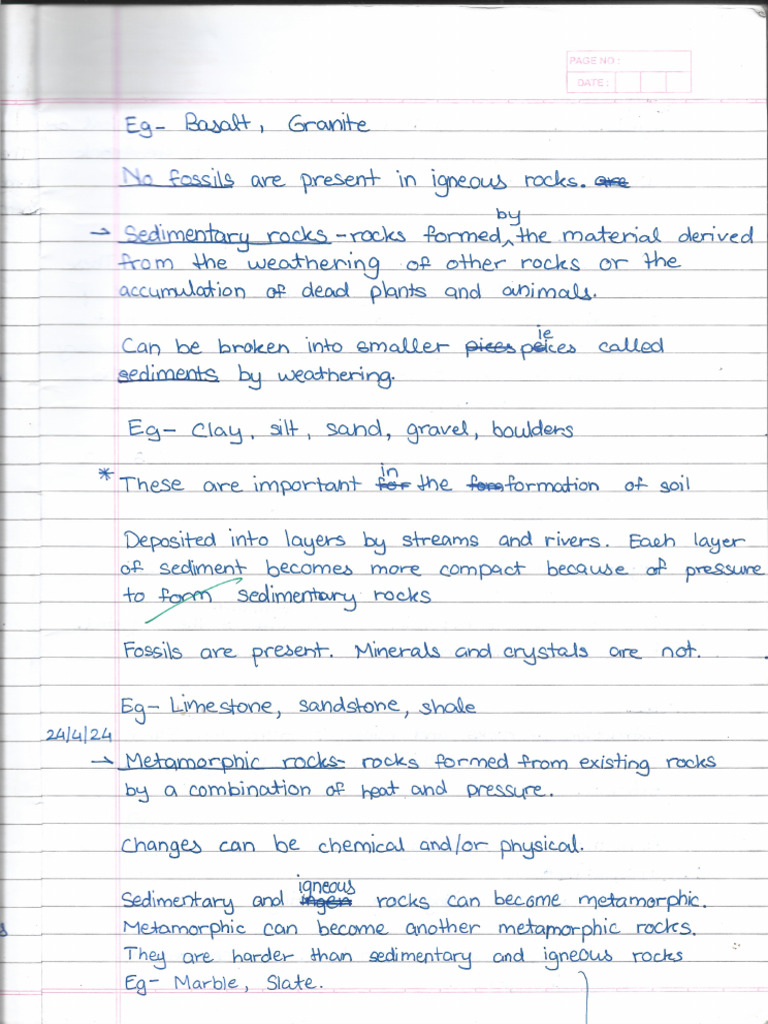 PAGE NO :
DATE :
Eg- Basalt, Granite
No fossils are present in igneous rocks. are
→ Sedimentary rocks - rocks formed by the material derived
from the weathering of other rocks or the
accumulation of dead plants and animals.
Can be broken into smaller pices pieces called
sediments by weathering.
Eg- Clay, silt, sand, gravel, boulders
* These are important for in the form formation of soil
Deposited into layers by streams and rivers. Each layer
of sediment becomes more compact because of pressure
to form sedimentary rocks
Fossils are present. Minerals and crystals are not.
Eg- Limestone, sandstone, shale
24/4/24
→ Metamorphic rocks- rocks formed from existing rocks
by a combination of heat and pressure.
Changes can be chemical and/or physical.
Sedimentary and igneous rocks can become metamorphic.
Metamorphic can become another metamorphic rocks.
They are harder than sedimentary and igneous rocks
Eg- Marble, Slate.